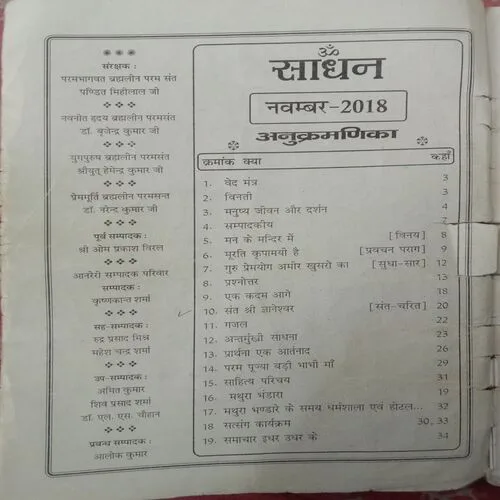 संरक्षक :
परमभागवत ब्रह्मलीन परम संत
पण्डित मिहीलाल जी
नवनीत हृदय ब्रह्मलीन परमसंत
डॉ. बृजेन्द्र कुमार जी
युगपुरुष ब्रह्मलीन परमसंत
श्रीयुत् हेमेन्द्र कुमार जी
प्रेममूर्ति ब्रह्मलीन परमसन्त
डॉ. नरेन्द्र कुमार जी
पूर्व सम्पादक :
श्री ओम प्रकाश विरल
आनरेरी सम्पादक परिवार
सम्पादक :
कृष्णकान्त शर्मा
सह-सम्पादक :
रुद्र प्रसाद मिश्र
महेश चन्द्र शर्मा
उप-सम्पादक :
अमित कुमार
शिव प्रसाद शर्मा
डॉ. एल. एस. चौहान
प्रबन्ध सम्पादक :
आलोक कुमार
ॐ
साधन
नवम्बर-2018
अनुक्रमणिका
क्रमांक क्या कहाँ
1. वेद मंत्र 3
2. विनती 3
3. मनुष्य जीवन और दर्शन 4
4. सम्पादकीय 7
5. मन के मन्दिर में [विनय] 8
6. मूरति कृपामयी है [प्रवचन पराग] 9
7. गुरु प्रेमयोग अमीर खुसरो का [सुधा-सार] 12
8. प्रश्नोत्तर 13
9. एक कदम आगे 18
10. संत श्री ज्ञानेश्वर [संत-चरित] 20
11. गजल 22
12. अन्तर्मुखी साधना 23
13. प्रार्थना एक आर्तनाद 26
14. परम पूज्या बड़ी भाभी माँ 29
15. साहित्य परिचय 31
16. मथुरा भंडारा 19
17. मथुरा भण्डारे के समय धर्मशाला एवं होटल... 32
18 सत्संग कार्यक्रम 30, 33
19. समाचार इधर उधर के 34